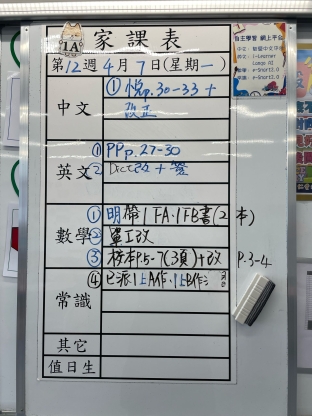 1A 家課表
第12週4月7日(星期一)
中文 ① 悅p.30-33+
改正
英文 ① PP p.27-30
② Dict改+簽
數學 ① 明帶1FA、1FB書(2本)
② 單工改
③ 校本P.5-7(3頁)+改 P.3-4
④ 已派1上A作、1上B作
常識
其它
值日生
自主學習 網上平台